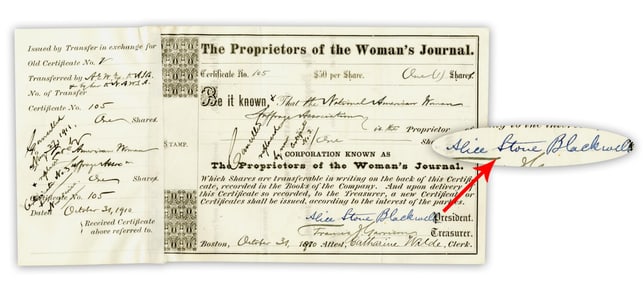 Issued by Transfer in exchange for
Old Certificate No.
Transferred by
No. of Transfer
Certificate No. 105
One Shares
Cancelled
American Woman
One Shares
Certificate No. 105
Dated October 31, 1910
Received Certificate
above referred to.
STAMP.
The Proprietors of the Woman's Journal.
Certificate No. 105 $50 per Share. One (1) Shares.
Be it known, That the National American Woman
Suffrage Association
is the Proprietor
One
Cancelled
CORPORATION KNOWN AS
The Proprietors of the Woman's Journal.
Which Shares are transferable in writing on the back of this Certificate,
recorded in the Books of the Company. And upon delivery
this Certificate so recorded, to the Treasurer, a new Certificate or
Certificates shall be issued, according to the interest of the parties.
Alice Stone Blackwell President.
Francis J. Garrison Treasurer.
Boston, October 31, 1910 Attest, Catharine Wilde, Clerk.
Alice Stone Blackwell